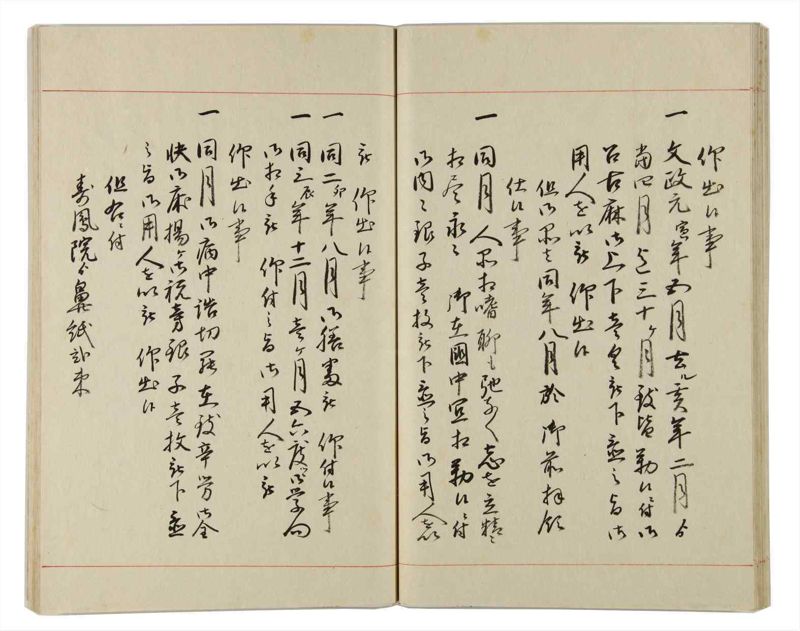 作出候事
一 文政元寅年五月去ル亥年二月ゟ
当四月迄三十ヶ月皆勤候ニ付御
召古麻御上下壱具被下置之旨御
用人を以被 作出候
但御品者同年八月於 御前拝領
仕候事
一 同月人品相嗜聊も弛なく志を立精々
相尽永々 御在国中宜相勤候ニ付
御内々銀子壱枚被下置之旨御用人を以
被 作出候事
一 同二卯年八月御膳番被 作付候事
一 同三辰年十二月壱ヶ月五六度御学問
御相手被 作付之旨御用人を以被
作出候事
一 同月御病中詰切罷在辛労御全
快御床揚御祝旁銀子壱枚被下置
之旨御用人を以被 作出候
但右ニ付
寿鳳院ゟ鼻紙